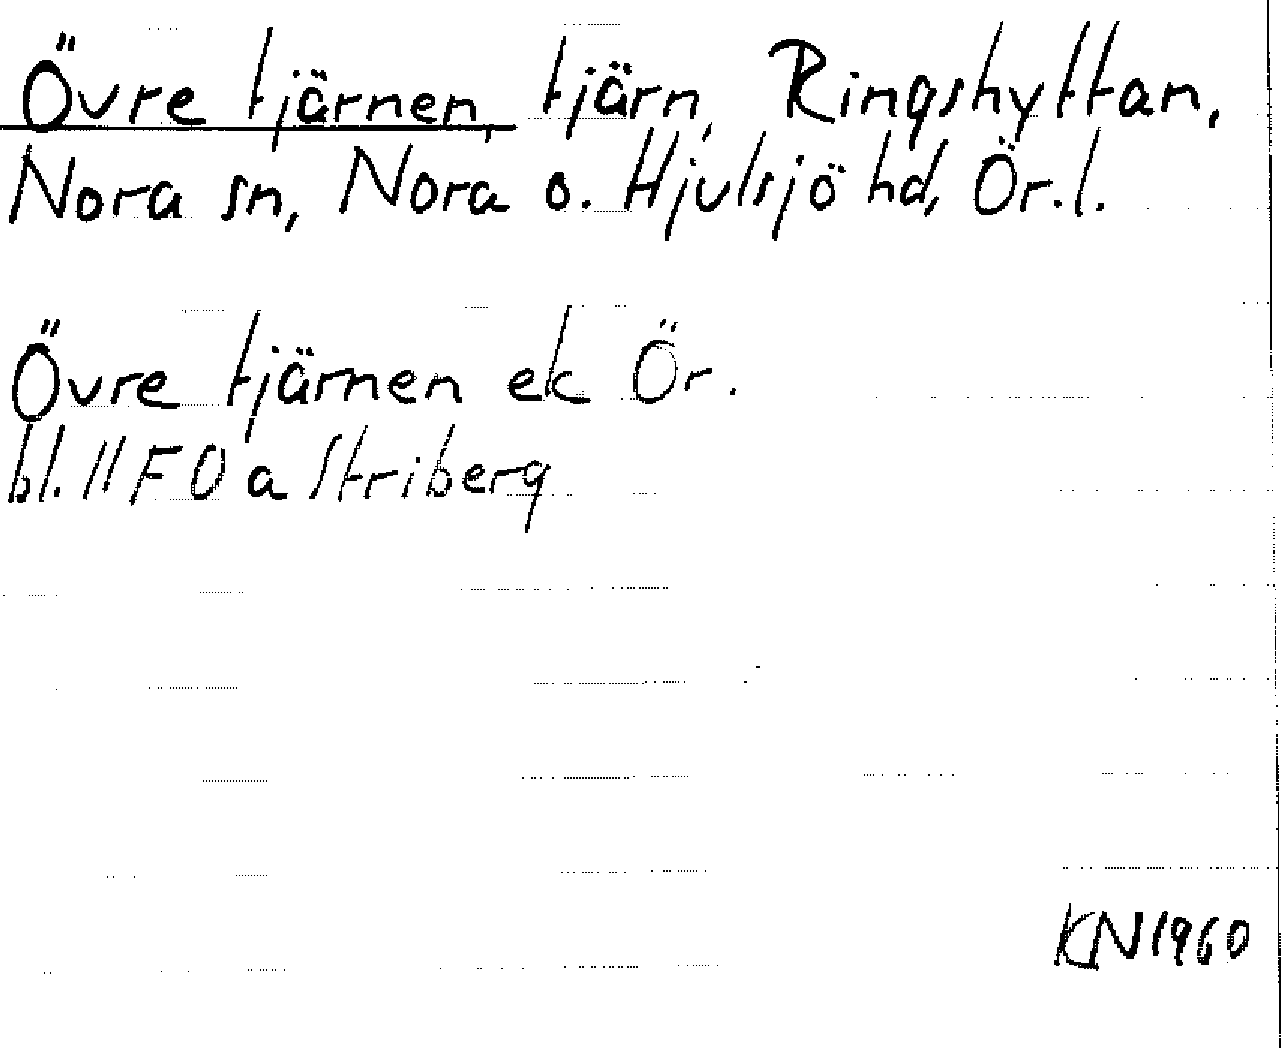 Övre tjärnen, tjärn, Ringshyttan,
Nora sn, Nora o. Hjulsjö hd, Ör.l.
Övre tjärnen ek Ör.
bl. 11 F 0 a Striberg
KN 1960